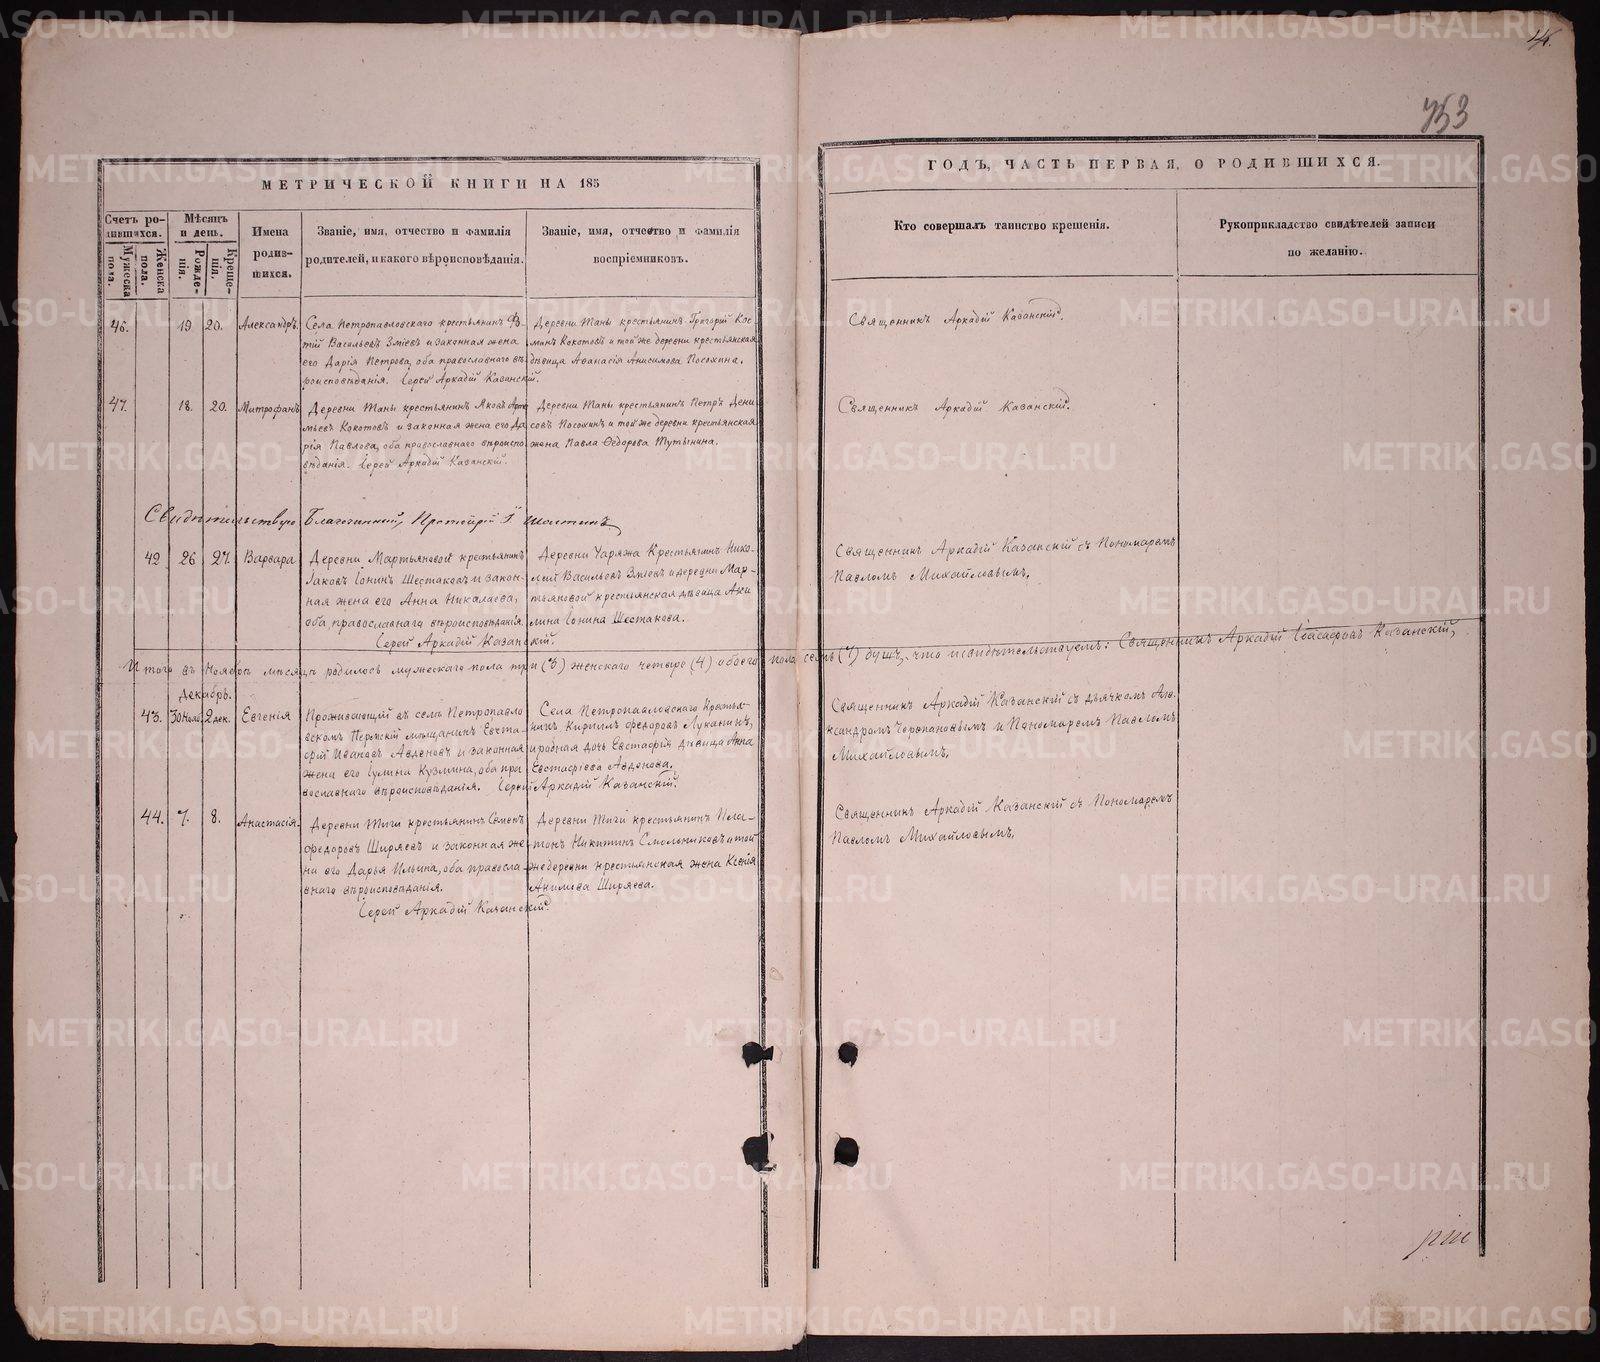 14.
753
МЕТРИЧЕСКОЙ КНИГИ НА 185
ГОДЪ, ЧАСТЬ ПЕРВАЯ, О РОДИВШИХСЯ.
Счетъ ро-
дившихся.
Мужеска
пола.
Женска
пола.
Мѣсяцъ
и день.
Рожде-
нія.
Креще-
нія.
Имена
родив-
шихся.
Званіе, имя, отчество и фамилія
родителей, и какого вѣроисповѣданія.
Званіе, имя, отчество и фамилія
воспріемниковъ.
Кто совершалъ таинство крещенія.
Рукоприкладство свидѣтелей записи
по желанію.
46. 19 20. Александръ.
Села Петропавловскаго крестьянинъ
тій Васильевъ Зміевъ и законная жена
его Дарія Петрова, оба православнаго вѣ-
роисповѣданія. Іерей Аркадій Казанскій.
Деревни Таны крестьянинъ Григорій Кос-
минъ Кокотовъ и той же деревни крестьянская
дѣвица Аѳанасія Анисимова Посохина.
Священникъ Аркадій Казанскій.
47. 18. 20. Митрофанъ
Деревни Таны крестьянинъ Яковъ Арте
мьевъ Кокотовъ и законная жена его Да
рія Павлова, оба православнаго вѣроиспо-
вѣданія. Іерей Аркадій Казанскій.
Деревни Таны крестьянинъ Петръ Дени
совъ Посохинъ и той же деревни крестьянская
жена Павла Ѳедорова Тутынина.
Священникъ Аркадій Казанскій.
Свидѣтельствую Благочинный, Протоіерей
42 26 27. Варвара
Деревни Мартьяновой крестьянинъ
Іаковъ Іонинъ Шестаковъ и закон-
ная жена его Анна Николаева,
оба, православнаго вѣроисповѣданія.
Іерей Аркадій Казанскій.
Деревни Чаряжа Крестьянинъ Нико-
лай Васильевъ Зміевъ и деревни Мар-
тьяновой крестьянская дѣвица Аки
лина Іонина Шестакова.
Священникъ Аркадій Казанскій съ Пономаремъ
Павломъ Михайловымъ.
Итого въ Ноябрѣ мѣсяцѣ родилось мужескаго пола три (3) женскаго четыре (4) обоего пола семь (7) душъ, что и свидѣтельствуемъ: Священникъ Аркадій Іоасафовъ Казанскій,
Декабрь.
43. 30 Нояб. 2 дек. Евгенія
Проживающій въ селѣ Петропавло
вскомъ Пермскій мѣщанинъ Евста-
фій Ивановъ Авденовъ и законная
жена его Іулина Кузмина, оба пра-
вославнаго вѣроисповѣданія. Іерей Аркадій Казанскій.
Села Петропавловскаго Крестья-
нинъ Кириллъ Федоровъ Луканинъ,
и родная дочь Евстафія дѣвица Анна
Евстафіева Авденова.
Священникъ Аркадій Казанскій съ дьячкомъ Але-
ксандромъ Черепановымъ и Пономаремъ Павломъ
Михайловымъ.
44. 7. 8. Анастасія.
Деревни Тиги крестьянинъ Семенъ
Федоровъ Ширяевъ и законная же
на его Дарья Ильина, оба правосла-
внаго вѣроисповѣданія.
Іерей Аркадій Казанскій.
Деревни Тиги крестьянинъ Пла-
тонъ Никитинъ Смольниковъ и той
же деревни крестьянская жена Ксенія
Акимова Ширяева.
Священникъ Аркадій Казанскій съ Пономаремъ
Павломъ Михайловымъ.
METRIKI.GASO-URAL.RU